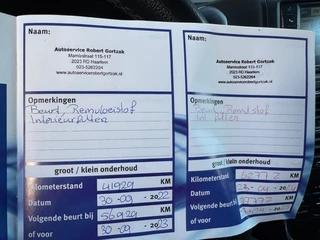 Naam:
Autoservice Robert Gortzak
Marnixstraat 115-117
2023 RD Haarlem
023-5262264
www.autoservicerobertgortzak.nl
Opmerkingen
Beurt, Remvloeistof
Interieurfilter
groot / klein onderhoud
Kilometerstand 41929 KM
Datum 30-09-2022
Volgende beurt bij 56929 KM
of voor 30-09-2023
Naam:
Autoservice Robert Gortzak
Marnixstraat 115-117
2023 RD Haarlem
023-5262264
www.autoservicerobertgortzak.nl
Opmerkingen
Beurt,
Int filter
groot / klein onderhoud
Kilometerstand KM
Datum 20
Volgende beurt bij KM
of voor